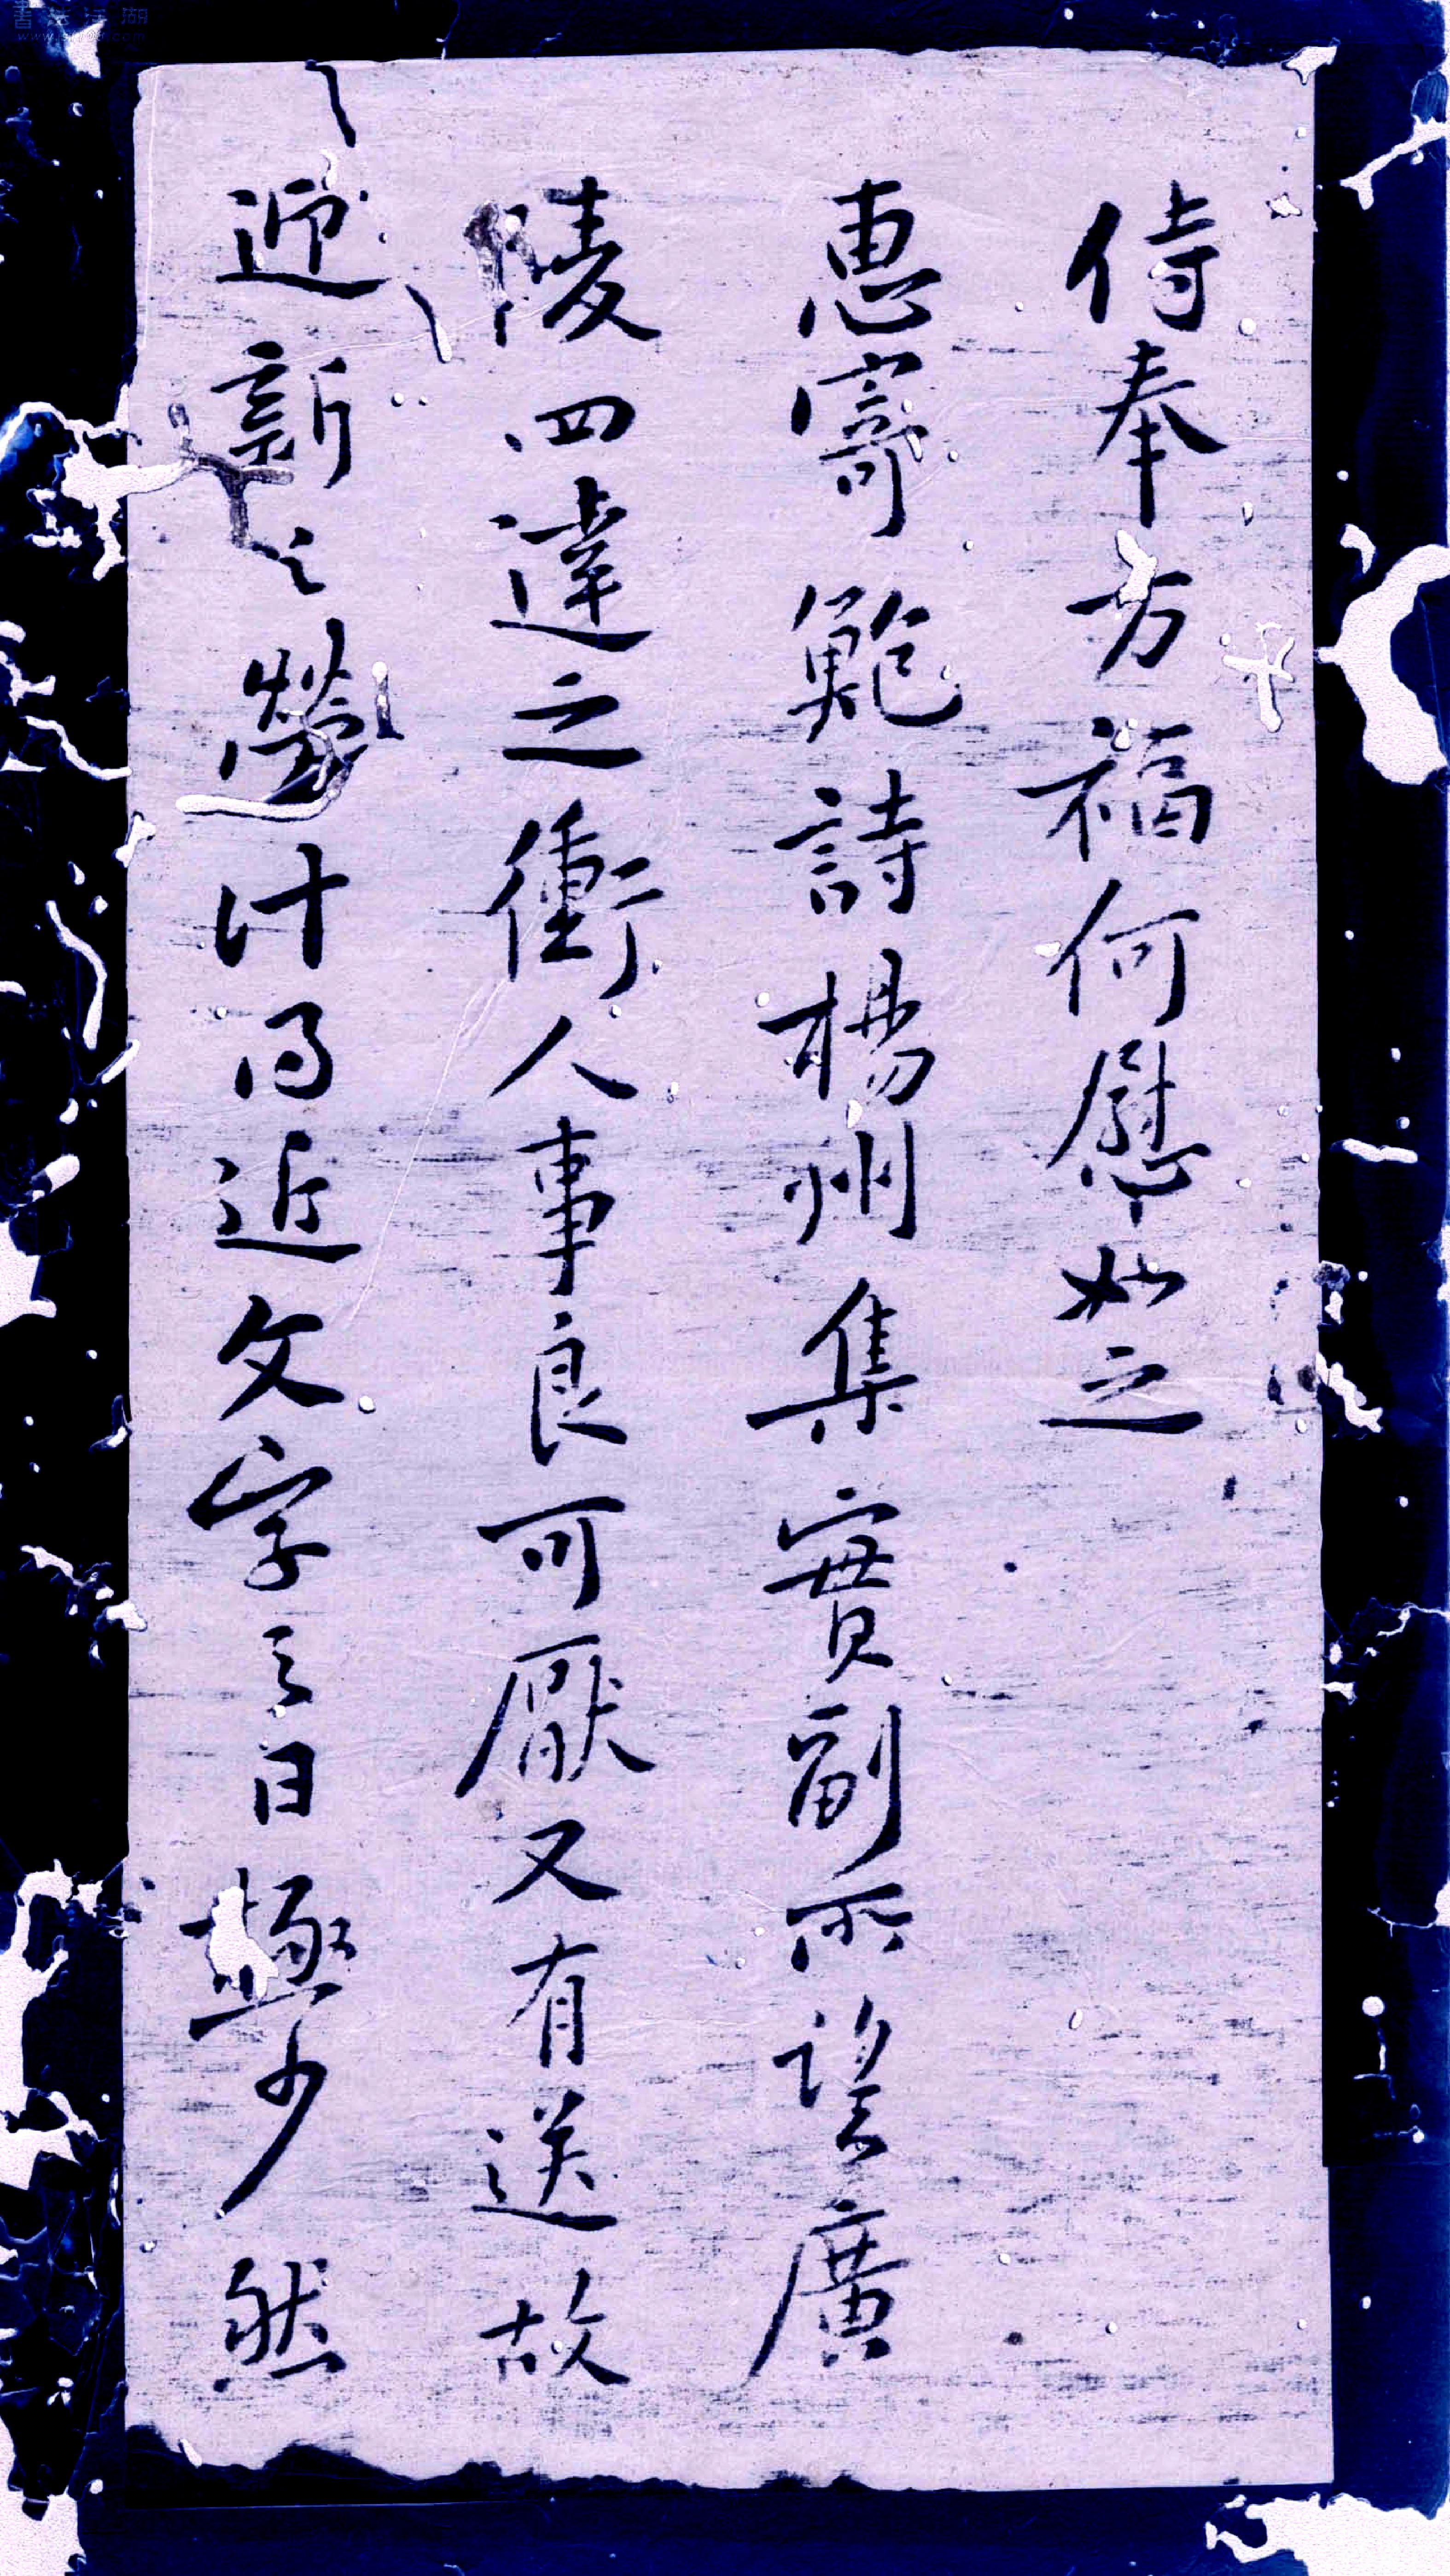 侍奉万福何慰如之
惠寄鮑詩楊州集實副所望廣
陵四達之衝人事良可厭又有送故
迎新之勞計得近文字之日極少然
書法江湖